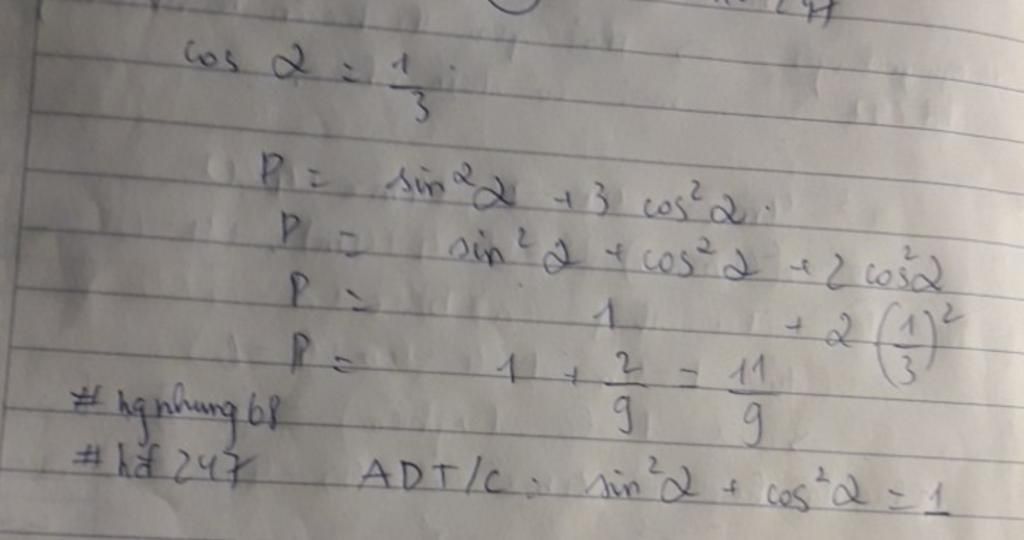 cos α = 1/3
P = sin²α + 3 cos²α.
P = sin²α + cos²α + 2 cos²α
P = 1 + 2 (1/3)²
P = 1 + 2/9 = 11/9
# hgnhung68
# hđ 247 ADT/C: sin²α + cos²α = 1